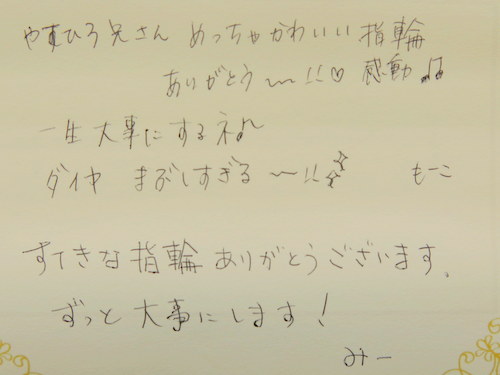 やすひろ兄さん めっちゃかわいい指輪
ありがとう〜!!♡ 感動♫
一生大事にするネ♪
ダイヤ まぶしすぎる〜!!☆ もーこ
すてきな指輪ありがとうございます。
ずっと大事にします!
みー